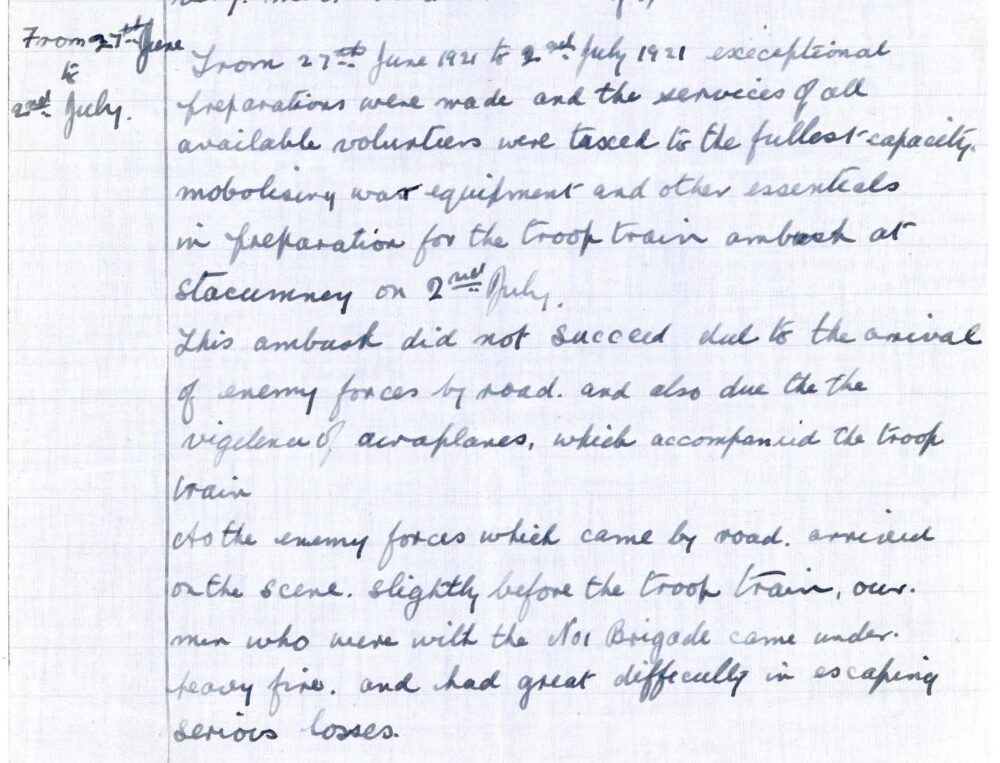 From 27th June
to
2nd July.
From 27th June 1921 to 2nd July 1921 execeptional
preparations were made and the services of all
available volunteers were taxed to the fullest capacity.
mobolising war equipment and other essentials
in preparation for the troop train ambush at
Stacumney on 2nd July.
This ambush did not succeed due to the arrival
of enemy forces by road. and also due the the
vigelence of airaplanes, which accompanied the troop
train
As the enemy forces which came by road. arrived
on the scene. slightly before the troop train, our.
men who were with the No1 Brigade came under.
heavy fire. and had great difficulty in escaping
serious losses.